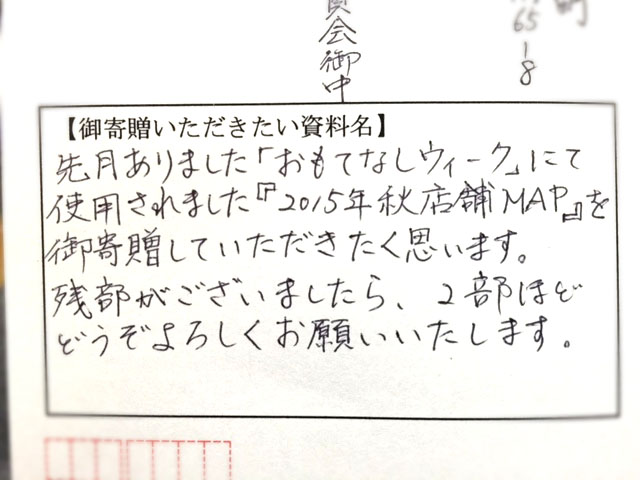 員会御中
65
1-8
【御寄贈いただきたい資料名】
先月ありました「おもてなしウィーク」にて
使用されました『2015年秋店舗MAP』を
御寄贈していただきたく思います。
残部がございましたら、2部ほど
どうぞよろしくお願いいたします。